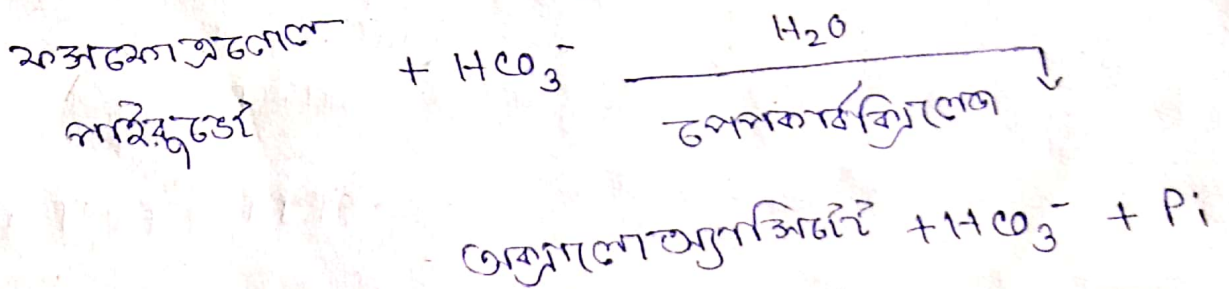 ফসফোএনোল
পাইরুভেট + HCO₃⁻ H₂O
পেপকার্বক্সিলেজ
অক্সালোঅ্যাসিটেট + HCO₃⁻ + Pi